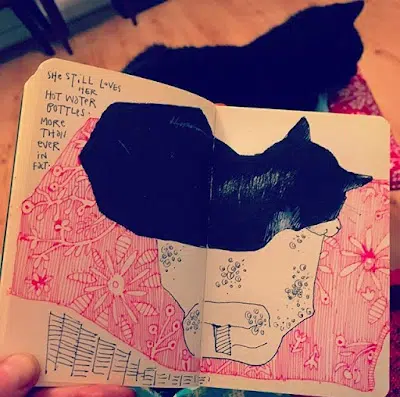 SHE STILL LOVES
HER
HOT WATER
BOTTLES.
MORE
THAN
EVER
IN
FACT.